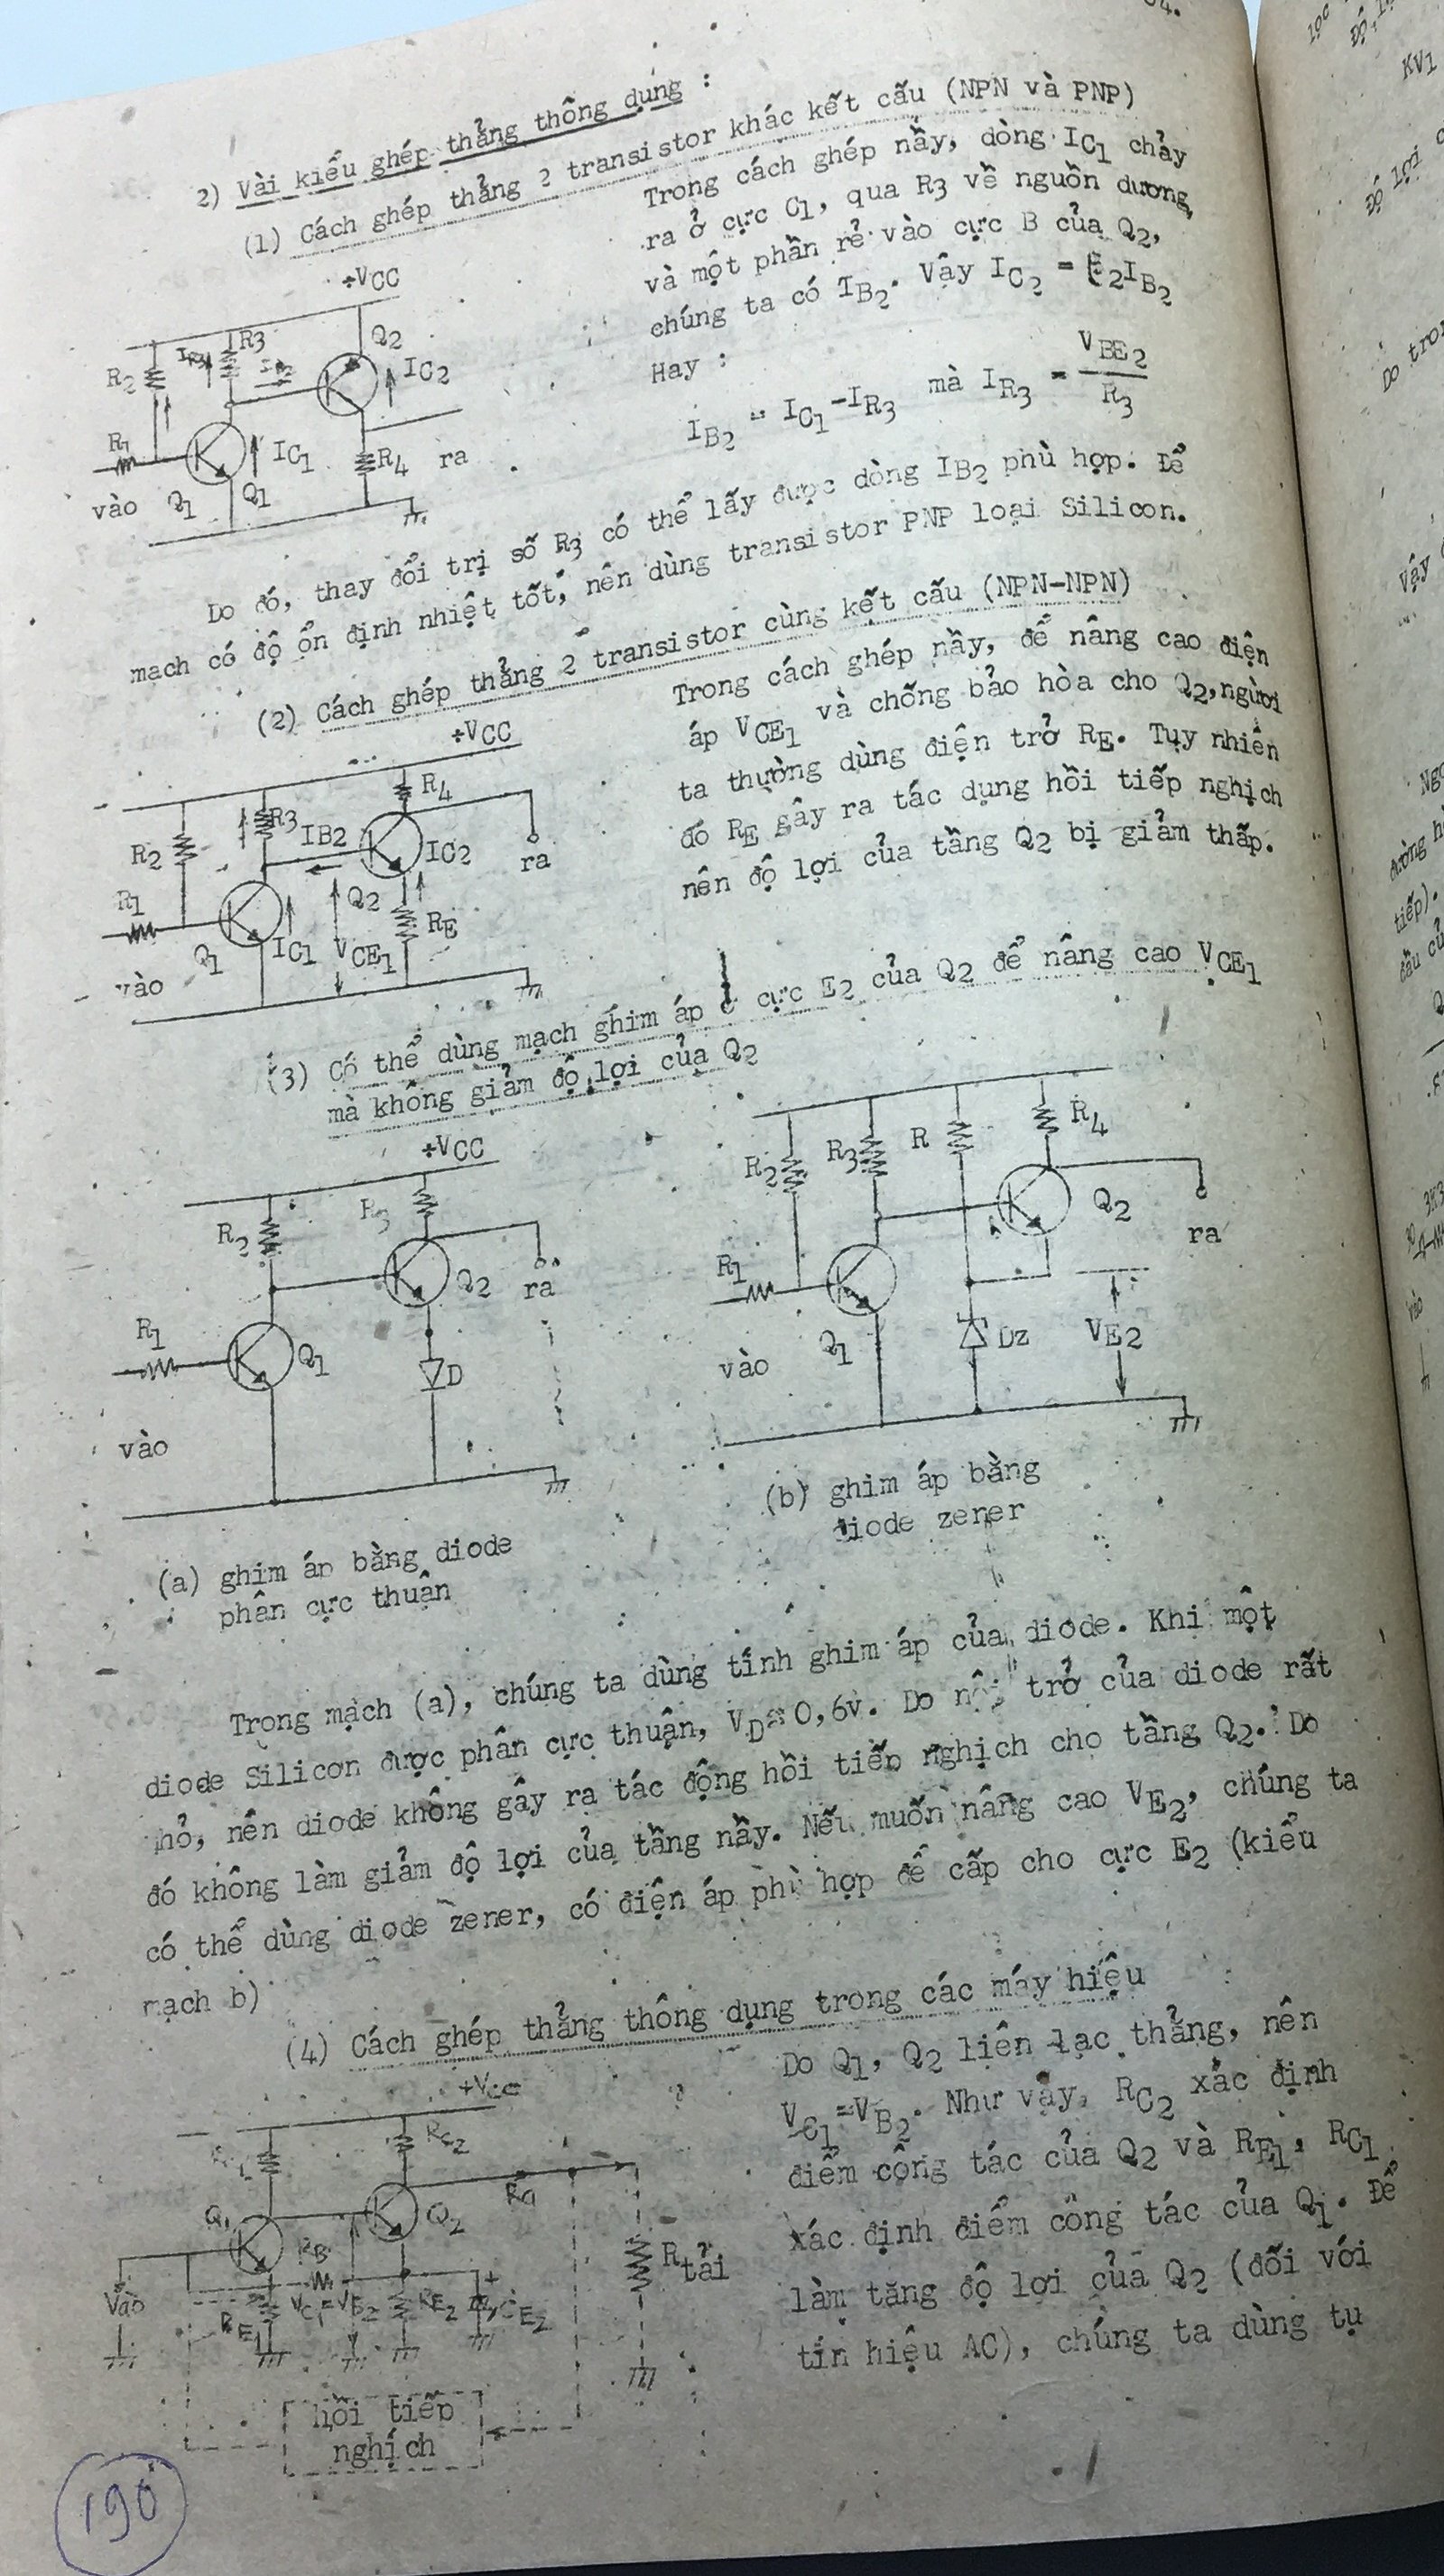 2) Vài kiểu ghép thẳng thông dụng :
(1) Cách ghép thẳng 2 transistor khác kết cấu (NPN và PNP)
Trong cách ghép nầy, dòng IC1 chảy
ra ở cực C1, qua R3 về nguồn dương,
và một phần rẻ vào cực B của Q2,
chúng ta có IB2. Vậy IC2 = β2IB2
Hay :
IB2 = IC1-IR3 mà IR3 = VBE2/R3
+VCC
R2
IR3
R3
IB2
Q2
IC2
R1
IC1
R4
ra
vào
Q1
Q1
Do đó, thay đổi trị số R3 có thể lấy được dòng IB2 phù hợp. Để
mạch có độ ổn định nhiệt tốt, nên dùng transistor PNP loại Silicon.
(2) Cách ghép thẳng 2 transistor cùng kết cấu (NPN-NPN)
Trong cách ghép nầy, để nâng cao điện
áp VCE1 và chống bảo hòa cho Q2, người
ta thường dùng điện trở RE. Tuy nhiên
đó RE gây ra tác dụng hồi tiếp nghịch
nên độ lợi của tầng Q2 bị giảm thấp.
+VCC
R4
R3
R2
IB2
IC2
ra
R1
Q2
RE
Q1
IC1
VCE1
vào
(3) Có thể dùng mạch ghim áp ở cực E2 của Q2 để nâng cao VCE1
mà không giảm độ lợi của Q2
+VCC
R2
R3
Q2
ra
R1
Q1
D
vào
R2
R3
R
R4
Q2
ra
R1
Q1
Dz
VE2
vào
(a) ghim áp bằng diode
phân cực thuận
(b) ghim áp bằng
diode zener
Trong mạch (a), chúng ta dùng tính ghim áp của diode. Khi một
diode Silicon được phân cực thuận, VD≈0,6v. Do nội trở của diode rất
nhỏ, nên diode không gây ra tác động hồi tiếp nghịch cho tầng Q2. Do
đó không làm giảm độ lợi của tầng nầy. Nếu muốn nâng cao VE2, chúng ta
có thể dùng diode zener, có điện áp phù hợp để cấp cho cực E2 (kiểu
mạch b)
(4) Cách ghép thẳng thông dụng trong các máy hiệu
Do Q1, Q2 liên lạc thẳng, nên
VC1=VB2. Như vậy, RC2 xác định
điểm công tác của Q2 và RE1, RC1
xác định điểm công tác của Q1. Để
làm tăng độ lợi của Q2 (đối với
tín hiệu AC), chúng ta dùng tụ
+VCC
RC2
Q1
Q2
RB
Rtải
Vào
RE1
VC1=VB2
RE2
+
CE2
hồi tiếp
nghịch
190